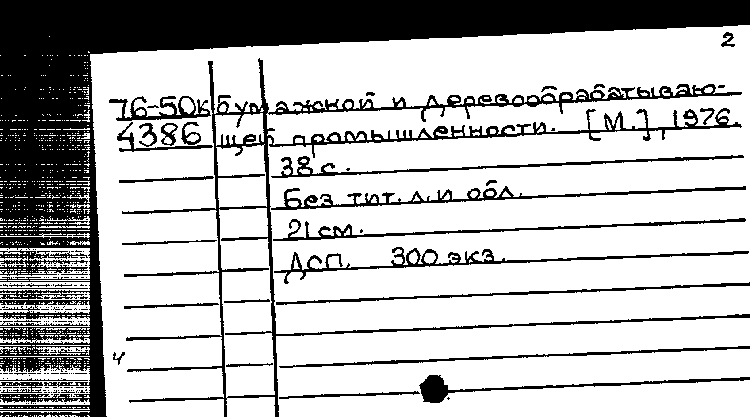 2
76-50к бумажной и деревообрабатываю-
4386 щей промышленности. [М.], 1976.
38 с.
Без тит. л. и обл.
21 см.
Дсп. 300 экз.
ч